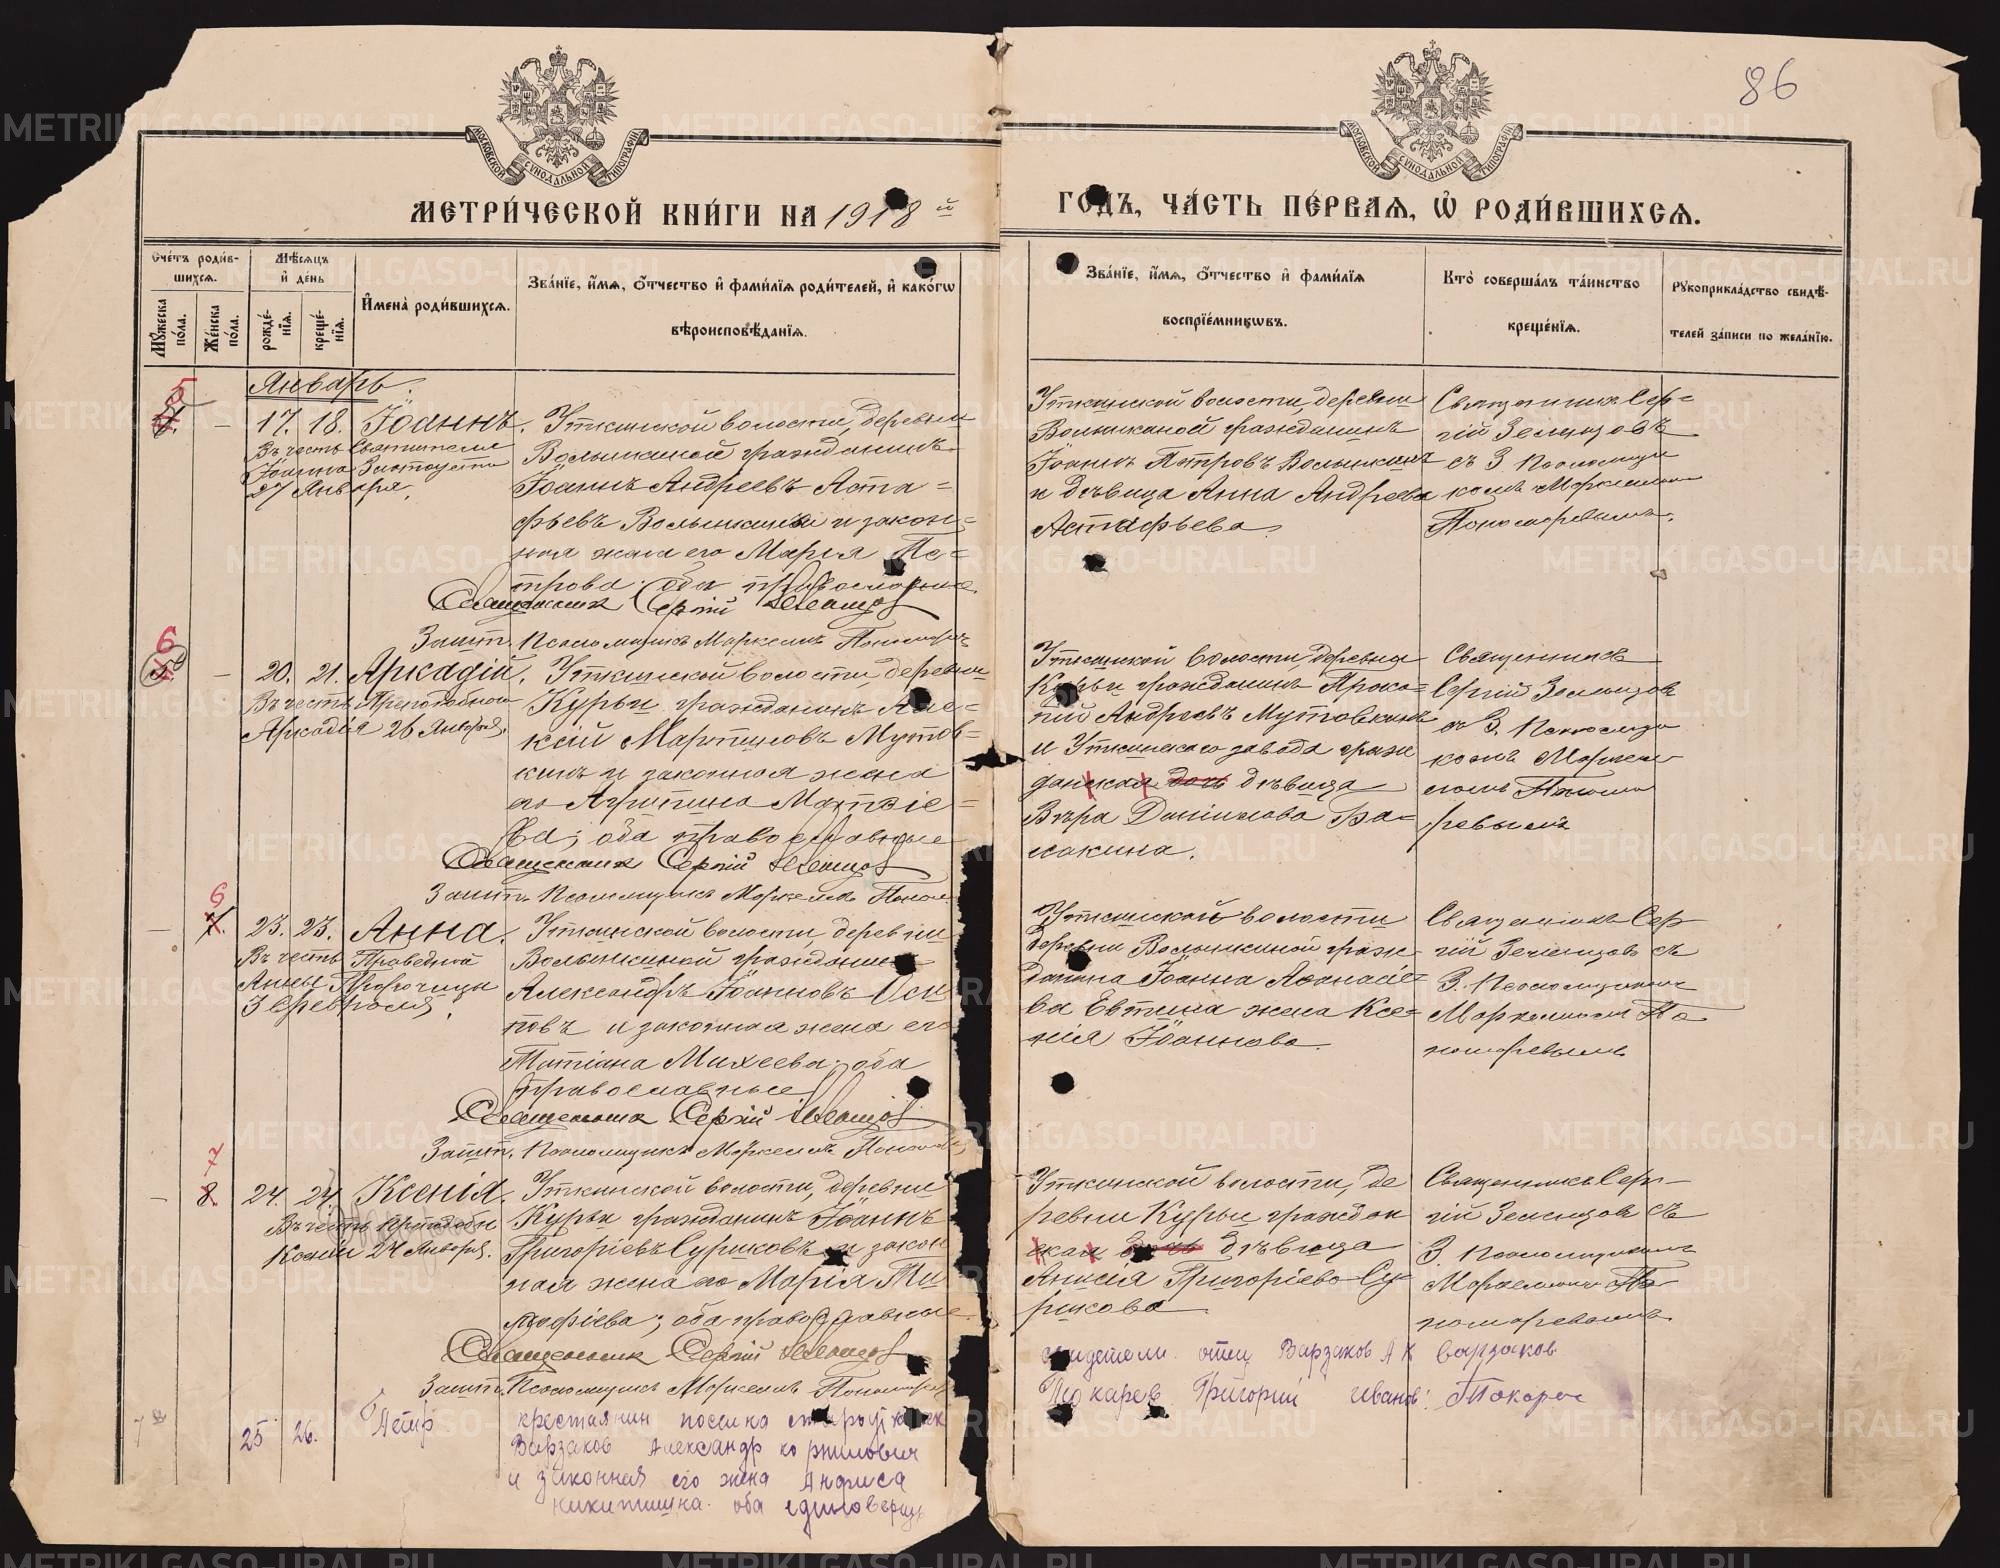 86
МОСКОВСКОЙ СѴНОДАЛЬНОЙ ТИПОГРАФІИ
МОСКОВСКОЙ СѴНОДАЛЬНОЙ ТИПОГРАФІИ
МЕТРИ́ЧЕСКОЙ КНИ́ГИ НА 1918 й
ГОДЪ, ЧА́СТЬ ПЕ́РВАѦ, Ѡ҆ РОДИ́ВШИХСѦ.
Сче́тъ роди́в-
шихсѧ.
Мѣ́сѧцъ
и҆ де́нь
Мꙋ́жеска по́ла.
Же́нска по́ла.
рожде́-
нїѧ.
креще́-
нїѧ.
И҆мена̀ роди́вшихсѧ.
Зва́нїе, и҆́мѧ, ѻ҆́тчество и҆ фами́лїѧ роди́телей, и҆ како́гѡ
вѣроисповѣ́данїѧ.
Зва́нїе, и҆́мѧ, ѻ҆́тчество и҆ фами́лїѧ
воспрїе́мникѡвъ.
Кто̀ соверша́лъ та́инство
креще́нїѧ.
Рꙋкоприкла́дство свидѣ́-
телей за́писи по жела́нїю.
Январь.
5
17. 18. Іоаннъ.
Въ честь Святителя
Іоанна Златоуста
27 Января.
Уткинской волости, деревни
Волынкиной гражданинъ
Іоаннъ Андреевъ Аста-
фьевъ Волынкинъ и закон-
ная жена его Марія Пе-
трова; оба православные
Священникъ Сергій Земляницов
Зашт. Псаломщикъ Маркеллъ Пономарев
Уткинской волости, деревни
Волынкиной гражданинъ
Іоаннъ Петровъ Волынкинъ
и дѣвица Анна Андреева
Астафьева.
Священникъ Сер-
гій
съ З. Псаломщи
комъ Маркелломъ
Пономаревымъ.
6
20. 21. Аркадій.
Въ честь Преподобнаго
Аркадія 26 Января.
Уткинской волости, деревни
Курьи гражданинъ Але-
ксій Мартиновъ Мутов-
кинъ и законная жена
его Агрипина Матѳіе-
ва; оба православные
Священникъ Сергій
Зашт. Псаломщикъ Маркеллъ Поном
Уткинской волости, деревни
Курьи гражданинъ Проко-
пій Андреевъ Мутовкинъ
и Уткинскаго завода граж
данская дочь дѣвица
Вѣра Даніилова Ба-
лакина.
Священникъ
Сергій
съ З. Псаломщи
комъ Маркел
ломъ Понома
ревымъ
6
7. 23. 23. Анна.
Въ честь Праведной
Анны Пророчицы
3 Февраля.
Уткинской волости, деревни
Волынкиной гражданинъ
Александръ Іоанновъ Оси
повъ и законная жена его
Татіана Михеева; оба
православные
Священникъ Сергій
Зашт. Псаломщикъ Маркеллъ Поном
Уткинской волости
деревни Волынкиной граж
данина Іоанна Аѳанасіе-
ва Евтина жена Ксе-
нія Іоаннова.
Священникъ Сер
гій
съ
З. Псаломщикомъ
Маркелломъ По
номаревымъ
7
8. 24. 24. Ксенія.
Въ честь Преподобн
Ксеніи 24 Января.
Уткинской волости, деревни
Курьи гражданинъ Іоаннъ
Григоріевъ Суриковъ и закон
ная жена его Марія Ти
моѳіева; оба православные
Священникъ Сергій
Зашт. Псаломщикъ Маркеллъ Пономарев
Уткинской волости, де
ревни Курьи граждан
ская дочь дѣвица
Анисія Григоріева Су
рикова
Священникъ Сер-
гій
съ
З. Псаломщикомъ
Маркелломъ По
номаревымъ
25 26. Петр
крестьянин поселка староуткинск
Варзаков Александр корнилович
и законная его жена Анфиса
никитишна. оба единоверцы
свидетели отец Варзаков А К Варзаков
Токарев Григорий Иванов: Токарев
METRIKI.GASO-URAL.RU